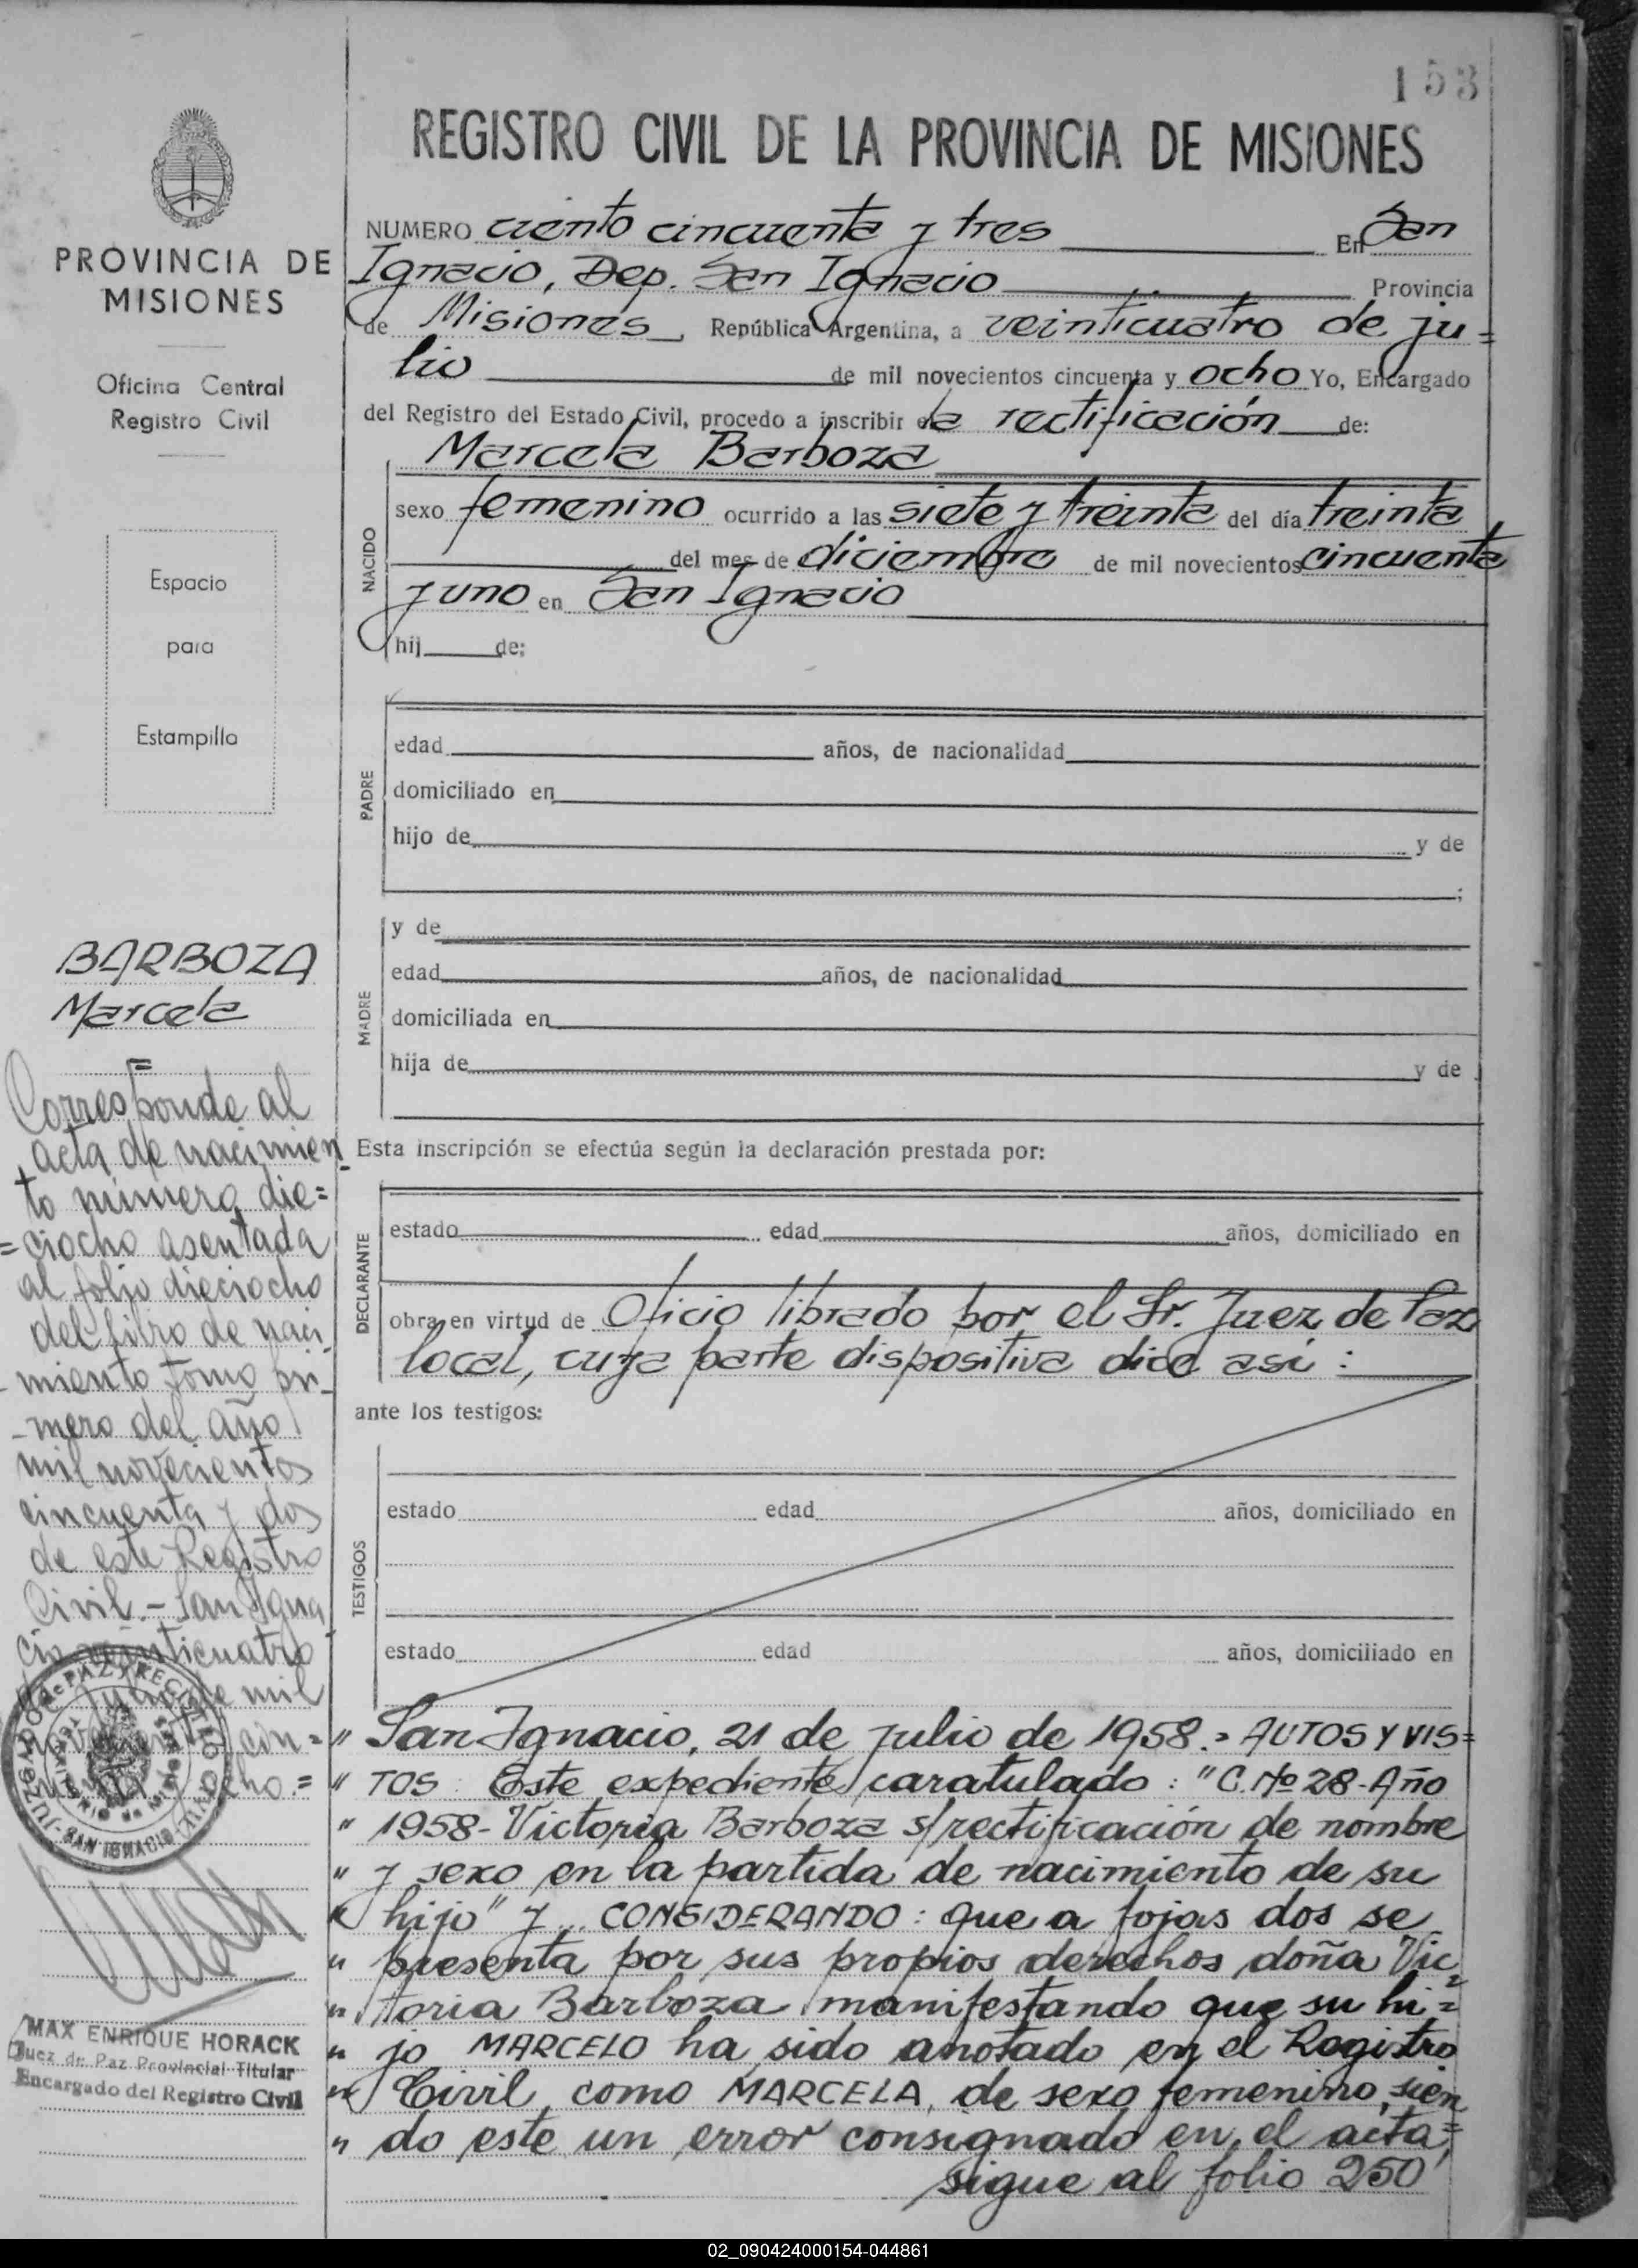 153
REGISTRO CIVIL DE LA PROVINCIA DE MISIONES
PROVINCIA DE
MISIONES
Oficina Central
Registro Civil
Espacio
para
Estampilla
NUMERO ciento cincuenta y tres En San
Ignacio, Dep. San Ignacio Provincia
de Misiones, República Argentina, a veinticuatro de ju=
lio de mil novecientos cincuenta y ocho Yo, Encargado
del Registro del Estado Civil, procedo a inscribir la rectificación de:
Marcela Barboza
NACIDO
sexo femenino ocurrido a las siete y treinta del día treinta
del mes de diciembre de mil novecientos cincuenta
y uno en San Ignacio
hij de:
PADRE
edad años, de nacionalidad
domiciliado en
hijo de y de
;
MADRE
y de
edad años, de nacionalidad
domiciliada en
hija de y de
Esta inscripción se efectúa según la declaración prestada por:
DECLARANTE
estado edad años, domiciliado en
obra en virtud de Oficio librado por el Sr. Juez de Paz
local, cuya parte dispositiva dice así :
ante los testigos:
TESTIGOS
estado edad años, domiciliado en
estado edad años, domiciliado en
" San Ignacio, 21 de julio de 1958.= AUTOS Y VIS=
" TOS : Este expediente caratulado : "C. Nº 28-Año
" 1958- Victoria Barboza s/rectificación de nombre
" y sexo en la partida de nacimiento de su
" hijo" y... CONSIDERANDO : que a fojas dos se
" presenta por sus propios derechos doña Vic=
" toria Barboza manifestando que su hi=
" jo MARCELO ha sido anotado en el Registro
" Civil como MARCELA, de sexo femenino, sien=
" do este un error consignado en el acta,
sigue al folio 250
BARBOZA
Marcela
=
Corresponde al
acta de nacimien
to número die=
=ciocho asentada
al folio dieciocho
del libro de naci
miento tomo pri_
-mero del año
mil novecientos
cincuenta y dos
de este Registro
Civil.- San Igna
cio veinticuatro
de mil
cin=
cho.=
JUZGADO de PAZ Y REGISTRO CIVIL
SAN IGNACIO
MAX ENRIQUE HORACK
Juez de Paz Provincial Titular
Encargado del Registro Civil
02_090424000154-044861